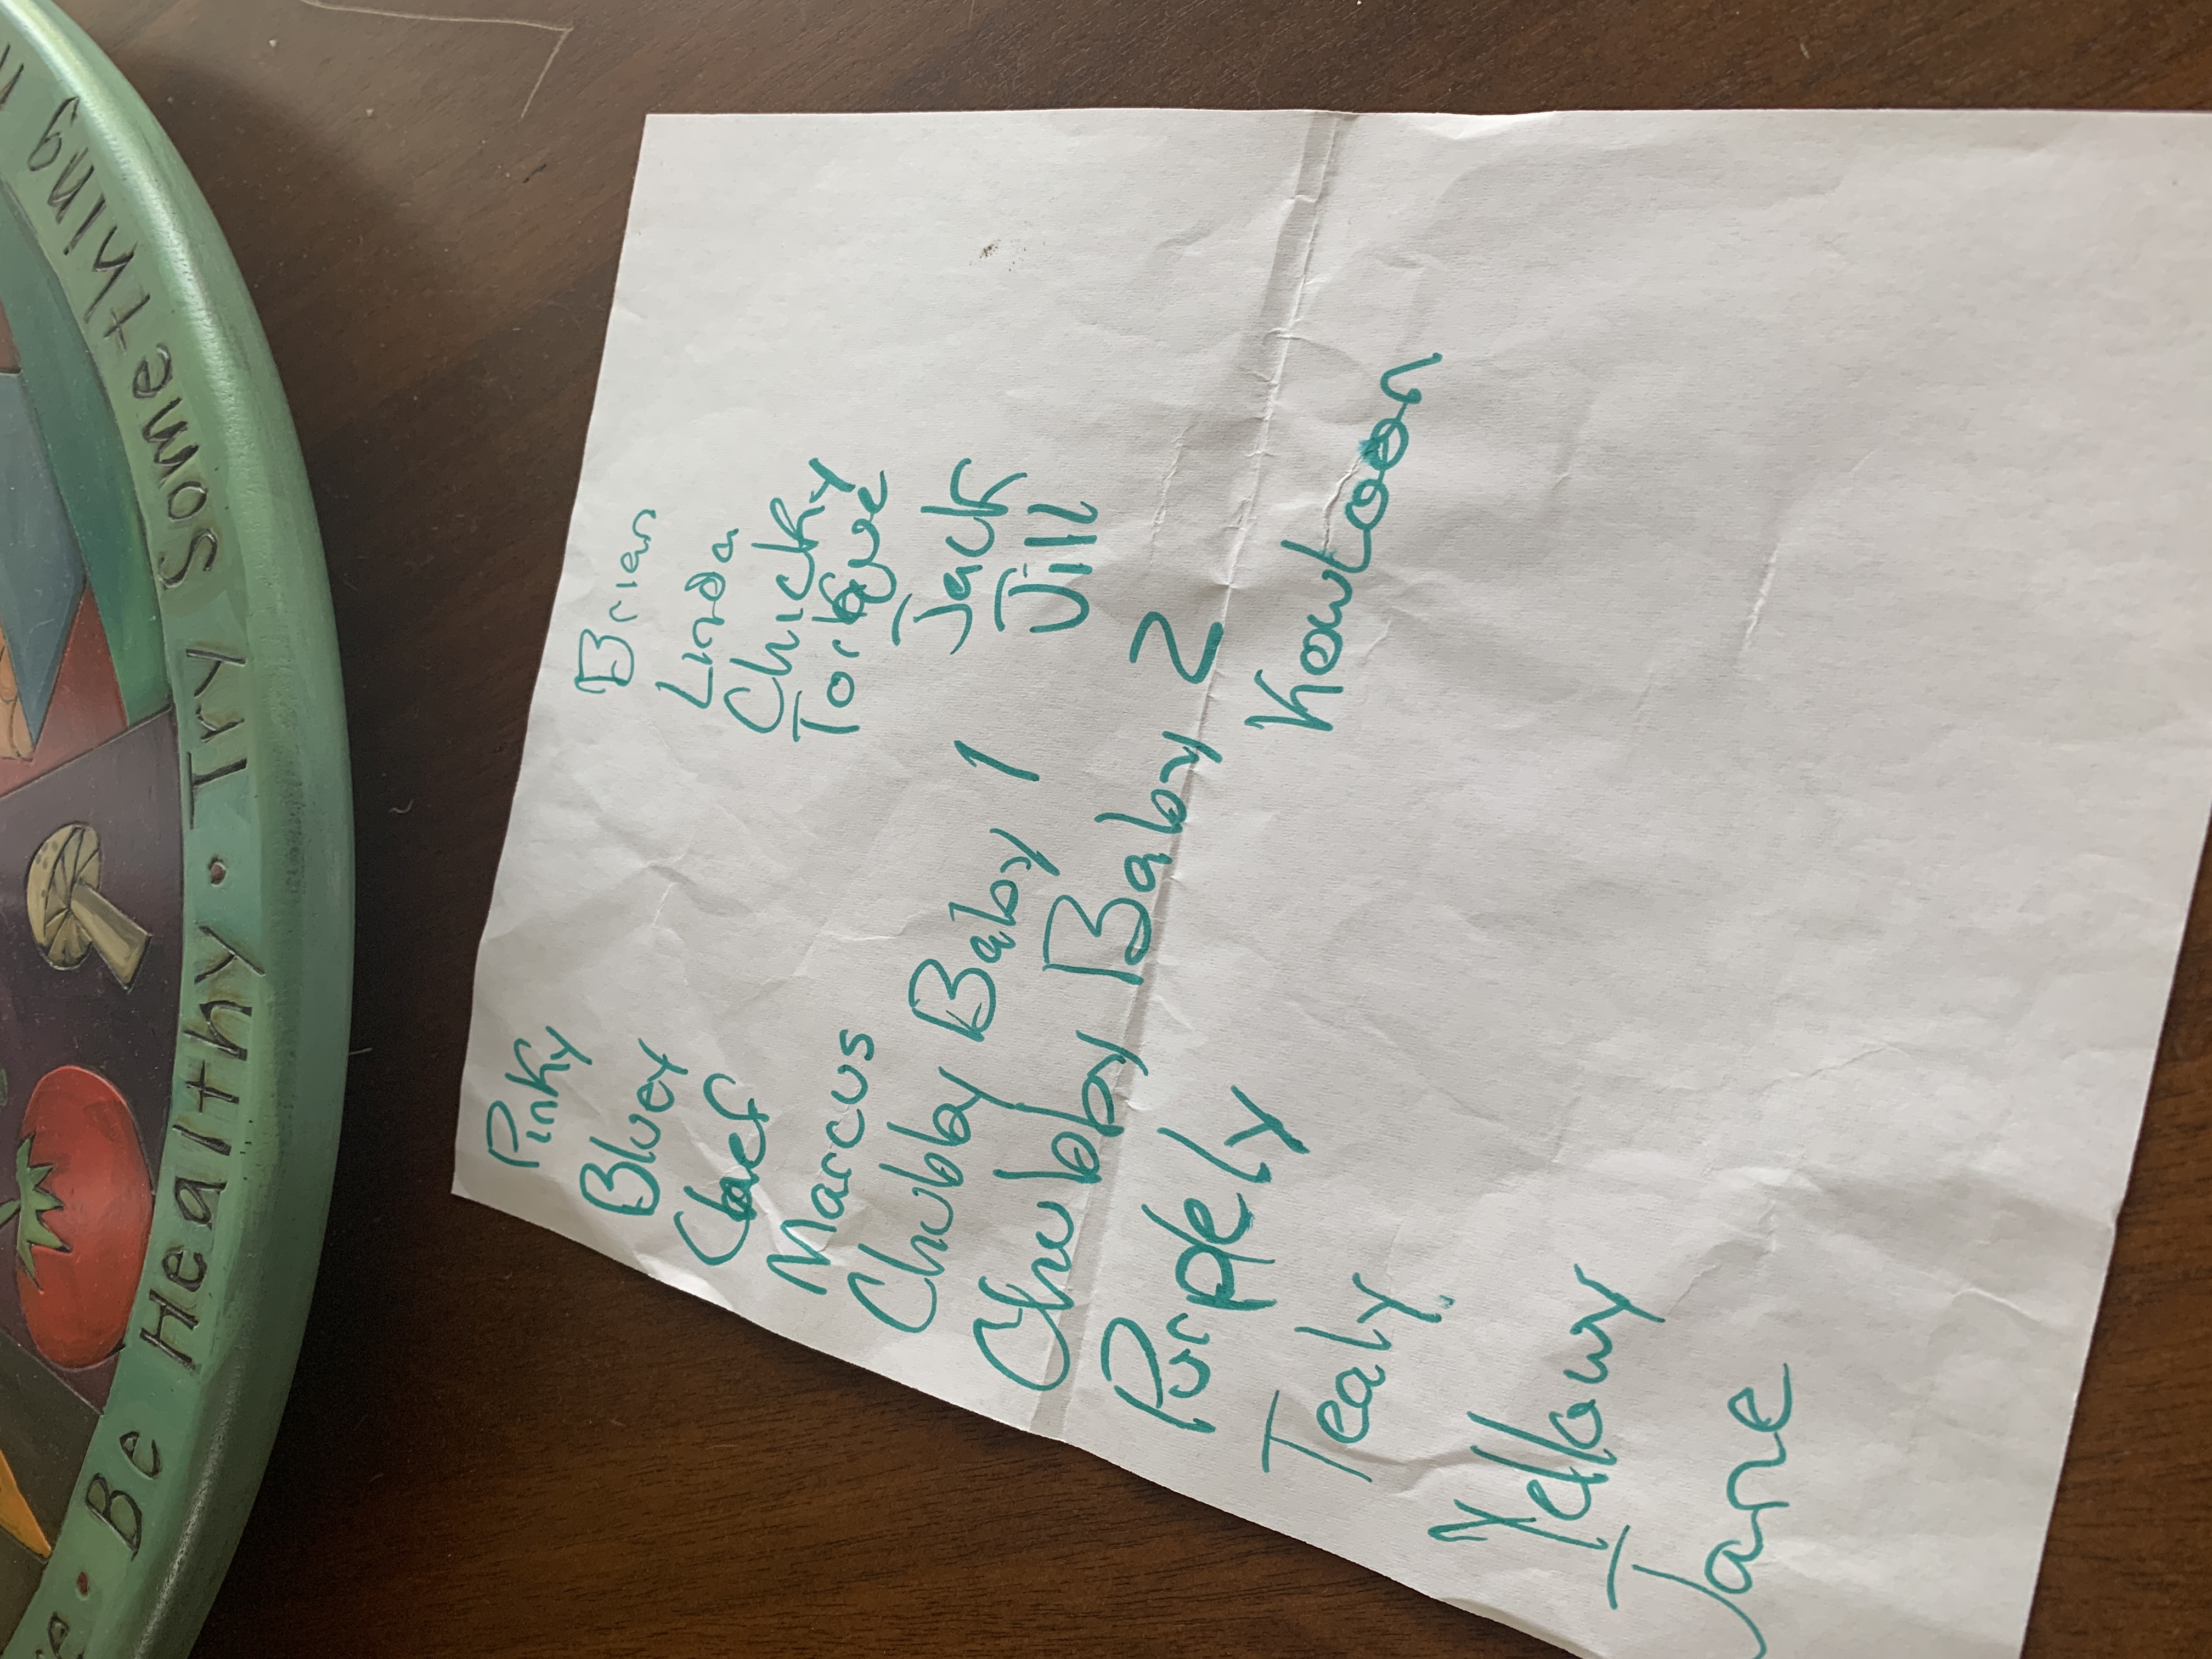 Be Healthy • Try Something
Pinky
Bluey
Chef
Marcus
Chubby Baby 1
Chubby Baby 2
Purplely
Tealy
Yellowy
Jane
Brian
Linda
Chicky
Torque
Jack
Jill
Kowloon